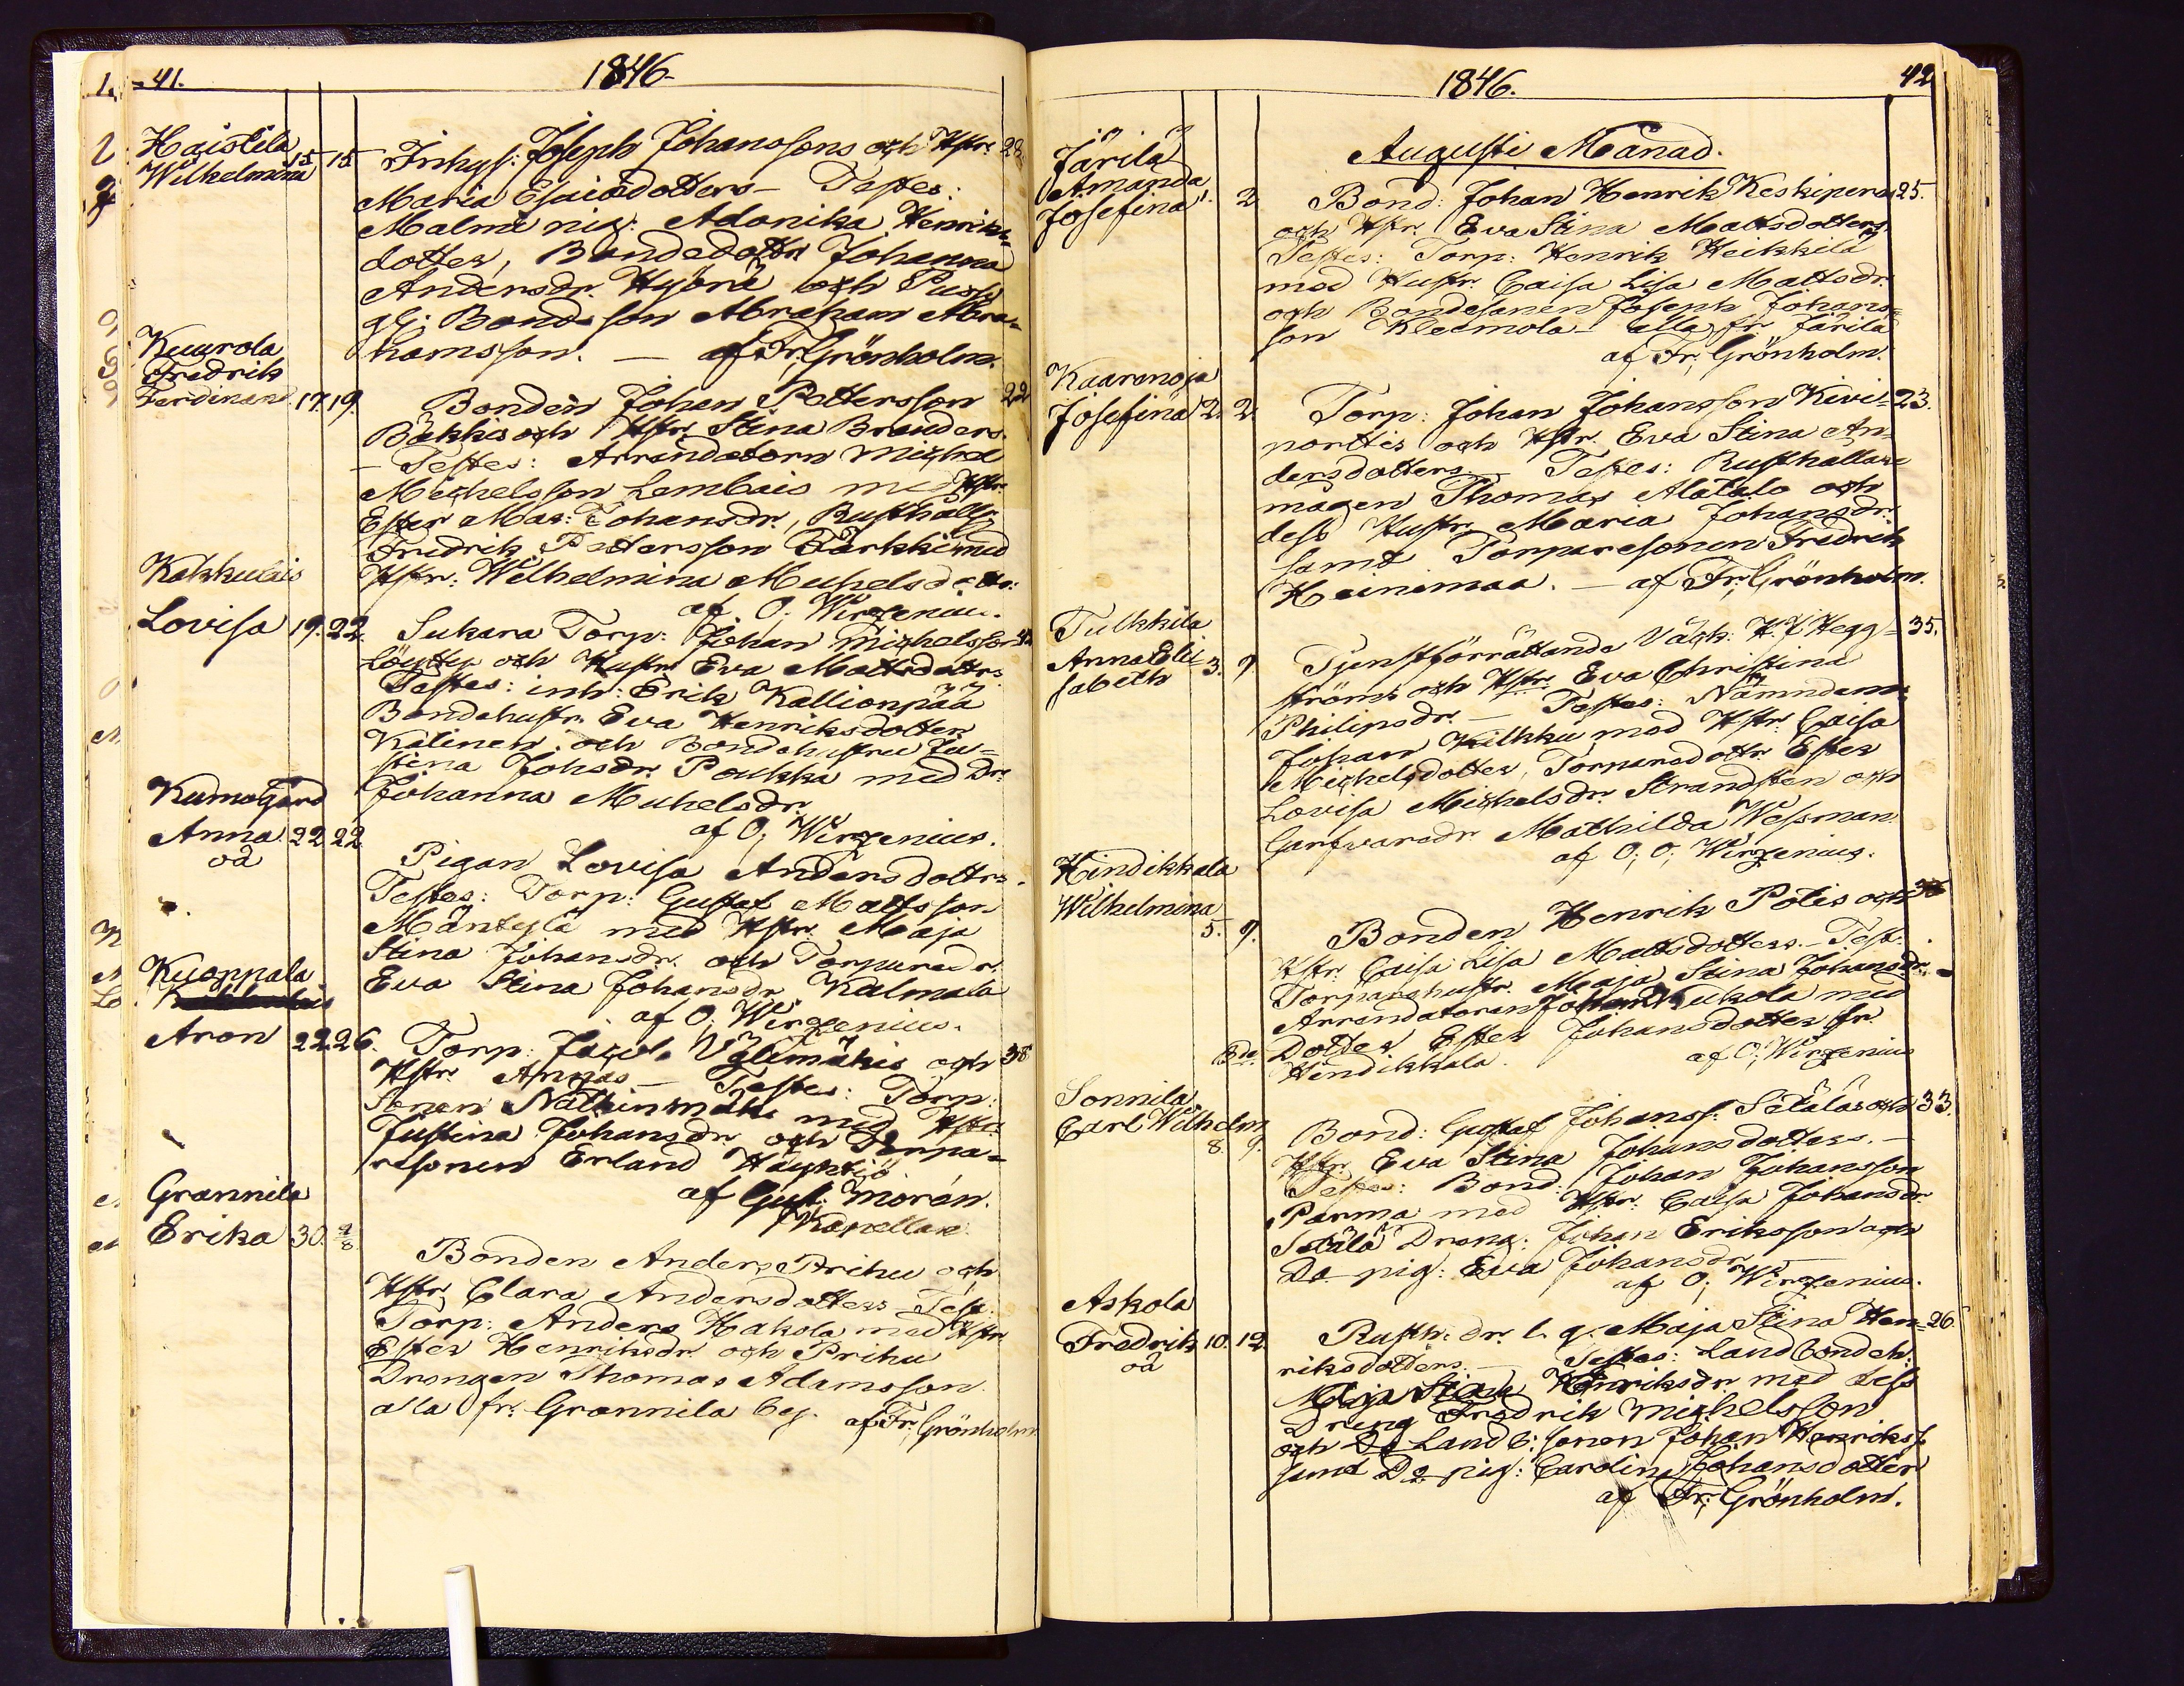 41.
1846.
Haistila
Wilhelmina 15. 15.
Inhys: Joseph Johanssons och Hstr. 28.
Maria Esaiædotters — Testes:
Malmi pig: Adonika Henriks-
dotter, Bondedottr Johanna
Andersdr. Hyörä och
Bondeson Abraham Abra-
hamsson. — af Fr. Grönholm.
Kuurola
Fredrik
Ferdinand. 17. 19.
Bonden Johan Pettersson 22
och Hstr. Stina Branders.
— Testes: Arrendatorn Michel
Michelsson Lembais med Hstr.
Ester Mar: Johansdr., Rusthåll.
Fredrik Pettersson Pärkki med
Hstr: Wilhelmina Michelsdotter.
af O. Wirzenius.
Kakkulais
Lovisa 19. 22.
Sukara Torp: Johan Michelsson
Löytty och Hustr. Eva Mattsdotters.
Testes: inh: Erik Kallionpää
Bondehustr. Eva Henriksdotter
Kälinen och Bondehustru Ju-
stina Johsdr. Poukka med Dr.
Johanna Michelsdr.
af O. Wirzenius.
Kumogård
Anna 22. 22.
oä
Pigan Lovisa Andersdotters.
Testes: Torp: Gustaf Mattsson
Mäntylä med Hstr. Maja
Stina Johansdr. och Torparedr.
Eva Stina Johansdr Kalmala
af O. Wirzenius.
Kuoppala
Aron 22. 26.
Torp: Jacob Ylimäkis och 38
Hstr. Annas — Testes: Torp:
sonen med Hstr.
Justina Johansdr. och Torpa-
resonen Erland
af Gust. Morén.
Kapellan.
Grannila
Erika 30. 2/8.
Bonden Anders Prihu och
Hstr. Clara Andersdotters — Test.
Torp: Anders Hakola med Hstr.
Ester Henriksdr och Prihu
Drängen Thomas Adamsson.
alla fr. Grannila by. af Fr. Grönholm
1846.
42
Augusti Månad.
Järilä
Amanda
Josefina 1. 2.
Bond: Johan Henrik Keskiperes 25.
och Hstr. Eva Stina Mattsdotters.
Testes: Torp: Henrik Heikkilä
med Hustr. Caisa Lisa Mattsdr.
och Bondesonen Joseph Johans-
son Kleemola — alla fr. Järilä
af Fr. Grönholm.
Kaarenoja
Josefina 2. 2.
Torp: Johan Johansson Kivi- 23.
porttis och Hstr. Eva Stina An-
dersdotters. — Testes: Rusthållare
mågen Thomas Alatalo och
dess Hustr. Maria Johansdr.
samt Torparesonen Fredrik
Heinimaa. — af Fr. Grönholm.
Tulkkila
Anna Eli-
sabeth 3. 9.
Tjenstförrättande Väak: H. J. Hegg- 35.
ströms och Hstr. Eva Christina
Philipsdr. — Testes: Nämndem:
Johan Kilkku med Hstr. Caisa
Michelsdotter, Torparedottr. Ester
Lovisa Michelsdr. Strandsten och
Garfvaredr. Mathilda Wessman.
af O. O. Wirzenius.
Hindikkala
Wilhelmina
5. 9.
Bonden Henrik Polis och
Hstr. Caisa Lisa Mattsdotters. — Test.
Torparehustr. Maja Stina Johansdr. —
Arrendatoren Johan Sukola med
Dotter Ester Johansdotter fr.
Hindikkala. af O. Wirzenius
Sonnila
Carl Wilhelm
8. 9.
Bond: Gustaf Johanss. Sätäläs och 33.
Hstr. Eva Stina Johansdotters. —
Testes: Bond: Johan Johansson
Parma med Hstr: Caisa Johansdr.
Sätälä Dräng: Johan Eriksson och
Do pig: Eva Johansdr —
af O. Wirzenius.
Askola
Fredrik 10. 12.
oä
Rusth. dr. l. q. Maja Stina Hen- 26.
riksdotters. — Testes: Landbondeh.
Maja Stina Henriksdr med dess
Dräng Fredrik Michelsson
och Do Landb: sonen Johan Henrikss.
samt Do pig: Carolina Johansdotter
af Fr. Grönholm.